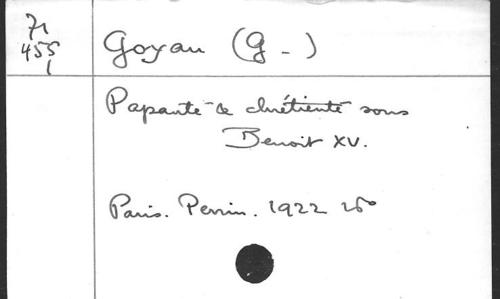 71
455
1
Goyau (G-)
Papauté & chrétienté sous
Benoit XV.
Paris. Perrin. 1922 16°